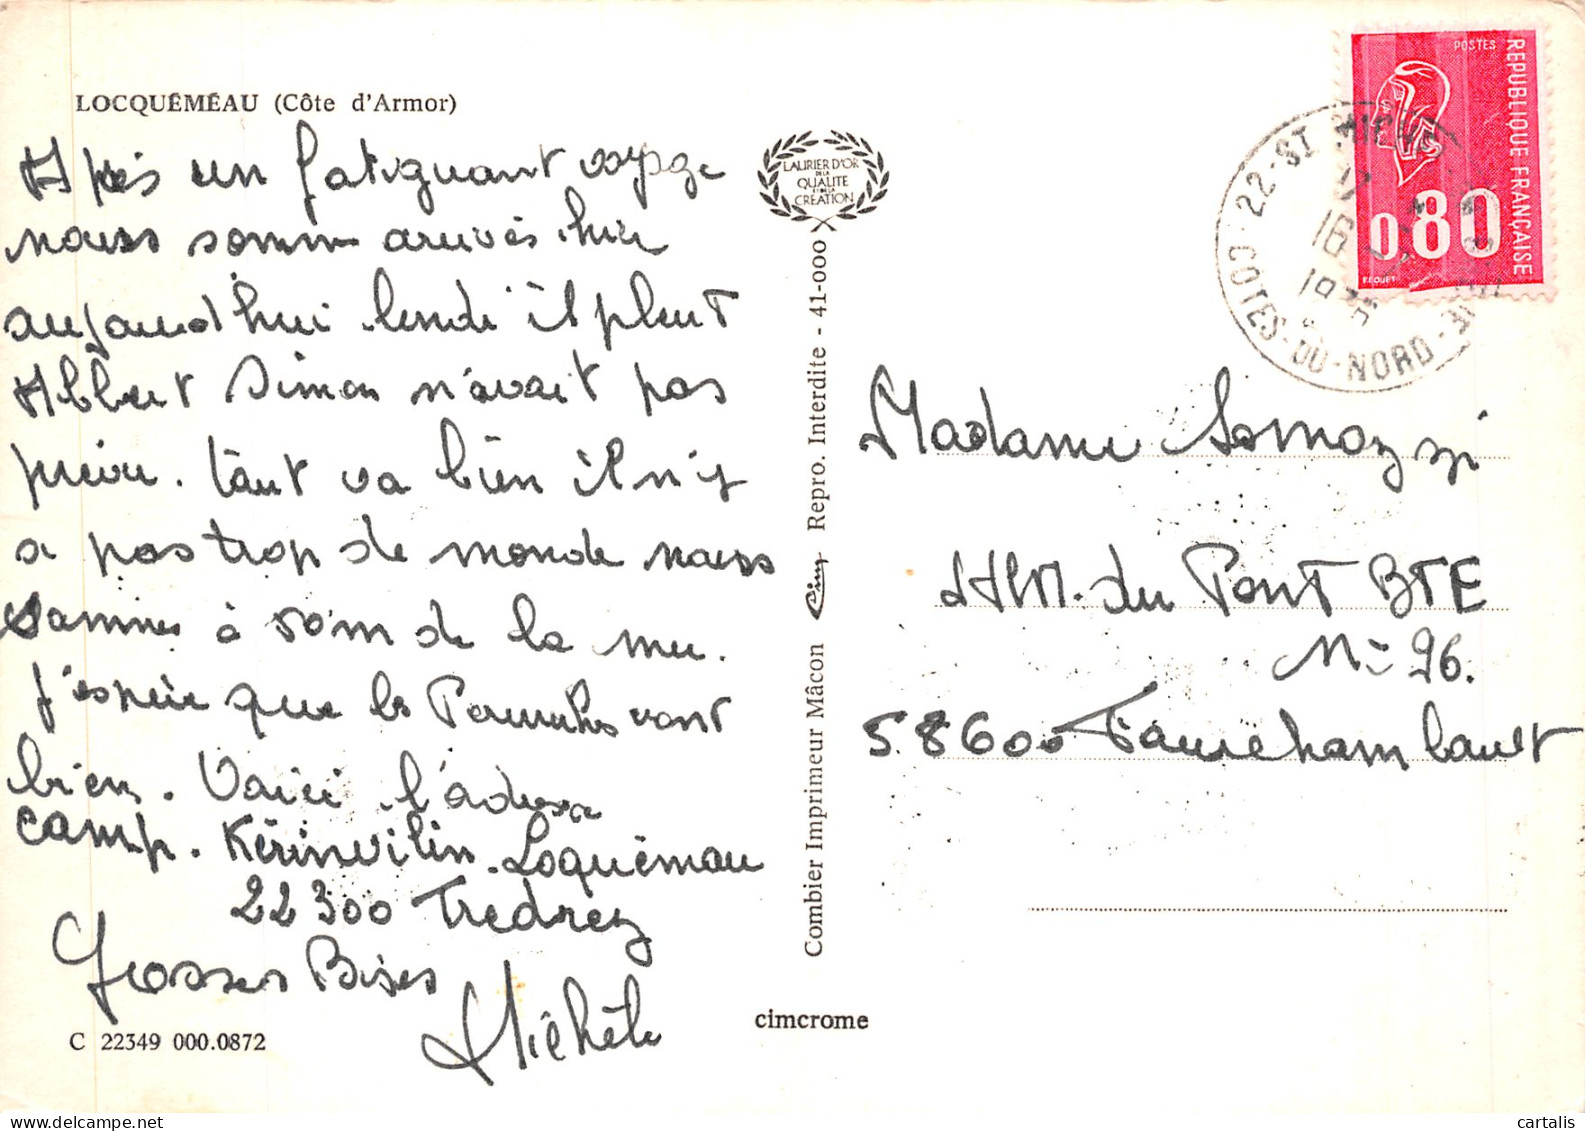 LOCQUÉMÉAU (Côte d'Armor)
Après un fatiguant voyage
nous somms arrivés hier
aujourd'hui lundi il pleut
Albert Simon n'avait pas
prévu. tout va bien il n'y
a pas trop de monde nous
sommes à 50m de la mer.
j'espère que les vont
bien. Voici l'adresse
camp. Kérinvilin. Loquémau
22300 Trédrez
Grosses Bises
Michèle
C 22349 000.0872
LAURIER D'OR
DE LA
QUALITE
ET DE LA
CREATION
Combier Imprimeur Mâcon Cim Repro. Interdite - 41-000
cimcrome
POSTES
REPUBLIQUE FRANÇAISE
0,80
BEQUET
22-ST MICHEL
COTES-DU-NORD
16
Madame Somazzi
HLM. du Pont BTE
N= 96.
58600 Fourchambault
cartalis